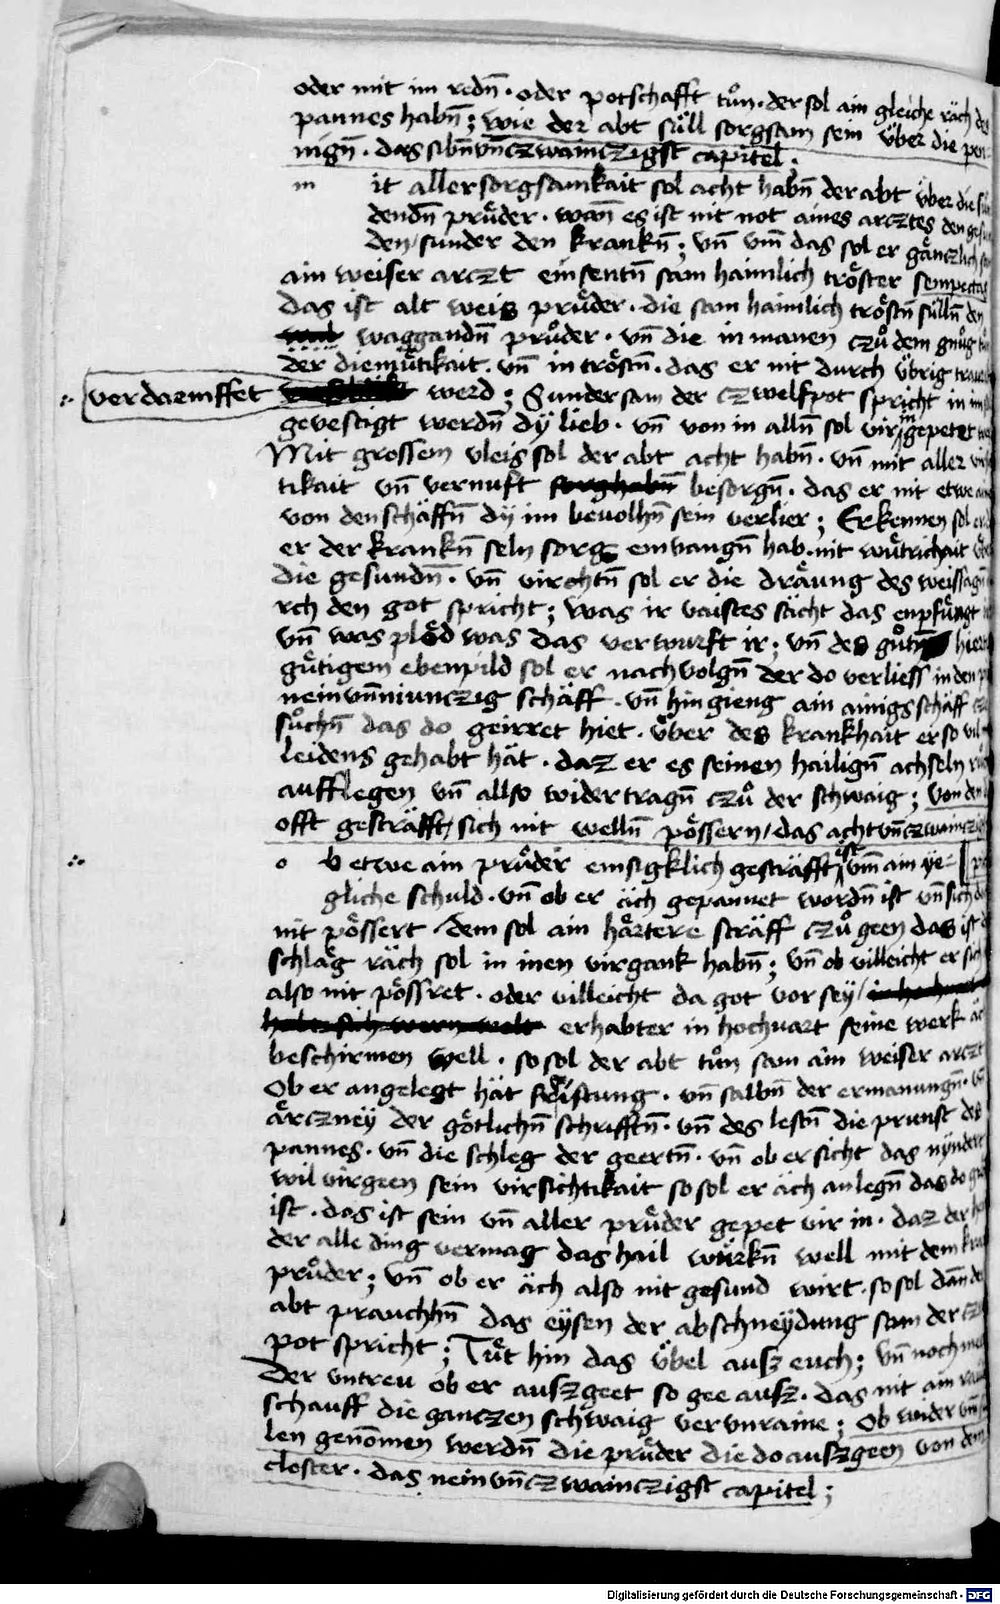 oder mit im redn̄ · oder potschafft tůn · der sol ain gleiche räch des
pannes habn̄ ; wie der abt sůll sorgsam sein ůber die pen
nign̄ · das sibn̄vn̄czwainczigst capitel ·
m it aller sorgsamkait sol acht habn̄ der abt ůber die
dendn̄ průder · wan̄ es ist nit not aines arcztes den
den / sunder den krankn̄ ; vn̄ vm̄ das sol er gänczlich
ain weiser arczt einsentn̄ sam haimlich tröster sempectas
das ist alt weis průder · die sam haimlich tröstn̄ sülln̄ den
waggandn̄ průder · vn̄ die in manen czů dem gnůg
der diemůtikait · vn̄ in tröstn̄ · das er nit durch ůbrig
verdaemffet werd ; Sunder sam der czwelfpot spricht in im
gevestigt werdn̄ dÿ lieb · vn̄ von in alln̄ sol vir in gepetet
Mit grossem vleis sol der abt acht habn̄ · vn̄ mit aller
tikait vn̄ vernuft besorgn̄ · das er nit etwe
von den schäffn̄ dÿ im bevolhn̄ sein verlier ; Erkennen sol
er der krankn̄ seln sorg emvangn̄ hab · nit wůtrichait
die gesundn̄ · vn̄ virchtn̄ sol er die dräung des weissagn̄
rch den got spricht ; was ir vaistes sächt das enpfůngt
vn̄ was plöd was das verwurft ir ; vn̄ des gůtn̄
gůtigem ebenpild sol er nachvolgn̄ der do verliess in den
neinvn̄niunczig schäff · vn̄ hin gieng ain ainigs schäff
sůchn̄ das do geirret hiet · ůber des krankhait er so vil
leidens gehabt hät · daz er es seinen hailign̄ achseln
aufflegen vn̄ allso widertragn̄ czů der schwaig ; von den
offt gesträfft / sich nit welln̄ pössern / das achtvn̄czwainczig
o b etwe ain průder emsigklich gesträfft ist vm̄ ain ÿe=
gliche schuld · vn̄ ob er äch gepannet wordn̄ ist vn̄ sich
nit pössert / dem sol ain härtere sträff czů geen das ist
schläg räch sol in inen virgank habn̄ ; vn̄ ob villeicht er sich
also nit pössret · oder villeicht da got vor sey /
erhabter in hochvart seine werk
beschirmen well · so sol der abt tůn sam ain weiser arczt
Ob er angelegt hät · vn̄ salbn̄ der ermanungn̄ ·
ärczneÿ der götlichn̄ schrifftn̄ · vn̄ des lestn̄ die prunst des
pannes · vn̄ die schleg der geertn̄ · vn̄ ob er sicht das nÿndert
wil virgeen sein virsichtikait so sol er äch anlegn̄ das do
ist · das ist sein vn̄ aller průder gepet vir in · daz der
der alle ding vermag das hail würkn̄ well mit dem
průder ; vn̄ ob er äch also nit gesund wirt · so sol dan̄
abt prauchn̄ das eÿsen der abschneÿdung sam der
pot spricht ; Tůt hin das ůbel ausz euch ; vn̄ noch
Der vntreu ob er auszgeet so gee ausz · das nit ain
schauff die ganczen schwaig vervnraine ; Ob wider
len genom̄en werdn̄ die průder die do auszgeen von dem
closter · das neinvn̄czwainczigst capitel ;
Digitalisierung gefördert durch die Deutsche Forschungsgemeinschaft - DFG